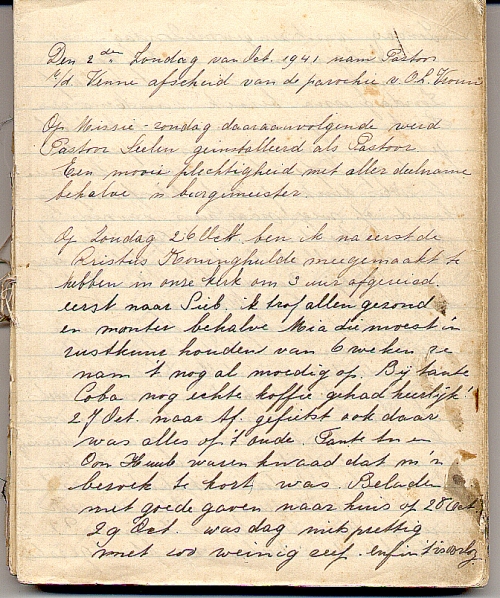 Den 2den Zondag van Oct. 1941 nam Pastoor
v/d Venne afscheid van de parochie v. O.L. Vrouw
Op Missie-zondag daaraanvolgende werd
Pastoor Seelen geïnstalleerd als Pastoor
Een mooie plechtigheid met aller deelname
behalve 'n burgemeester.
Op Zondag 26 Oct ben ik na eerst de
Kristus Koninghulde meegemaakt te
hebben in onze kerk om 3 uur afgereisd.
eerst naar Sieb. ik trof allen gezond
en monter behalve Mia die moest 'n
rustkuur houden van 6 weken ze
nam 't nog al moedig op. Bij tante
Coba nog echte koffie gehad heerlijk!
27 Oct. naar Af. gefietst ook daar
was alles op 't oude. Tante en
Oom Huub waren kwaad dat m'n
bezoek te kort was. Beladen
met goede gaven naar huis op 28 Oct
29 Oct. wasdag niet prettig
met zoo weinig zeep. enfin 't is oorlog